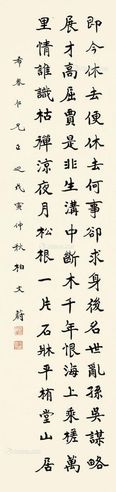 即今休去便休去何事卻求身後名世亂孫吳謀略
展才高屈賈是非生溝中斷木千年恨海上乘槎萬
里情誰識枯禪涼夜月松根一片石牀平栯堂山居
兄正之戊寅仲秋柏文蔚